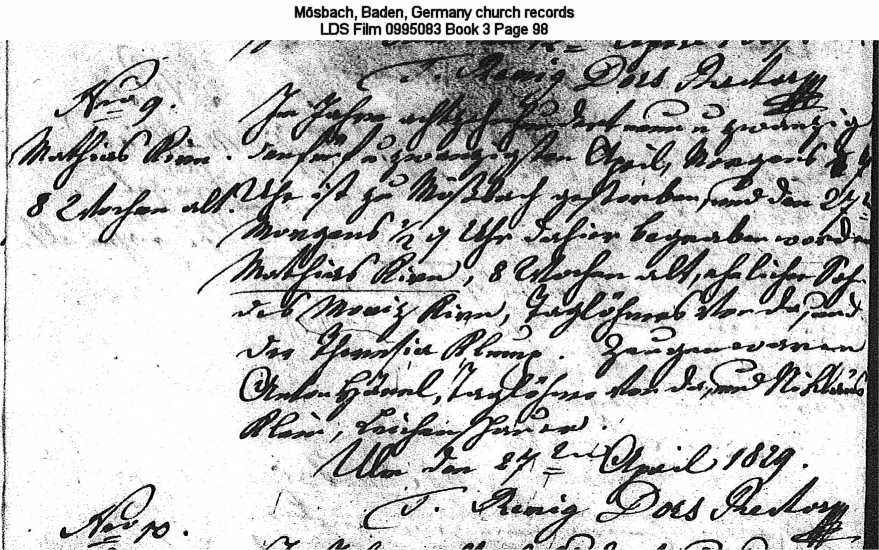 Mösbach, Baden, Germany church records
LDS Film 0995083 Book 3 Page 98
Nro 9.
Mathias Kirn.
8 Wochen alt.
Im Jahre achtzehnhundert neun u zwanzig
den fünf u zwanzigsten April, Morgens
Uhr ist zu Mößbach gestorben, und den 27
Morgens ½ 9 Uhr dahier begraben worden
Mathias Kirn, 8 Wochen alt, ehelicher Sohn
des Moriz Kirn, Taglöhners von da, und
der Theresia Klump. Zeugen waren
Anton, Taglöhner von da, und Niklaus
Klein, Leichenschauer.
Ulm den 27 April 1829.
T. Dors Rector
Nro 10.